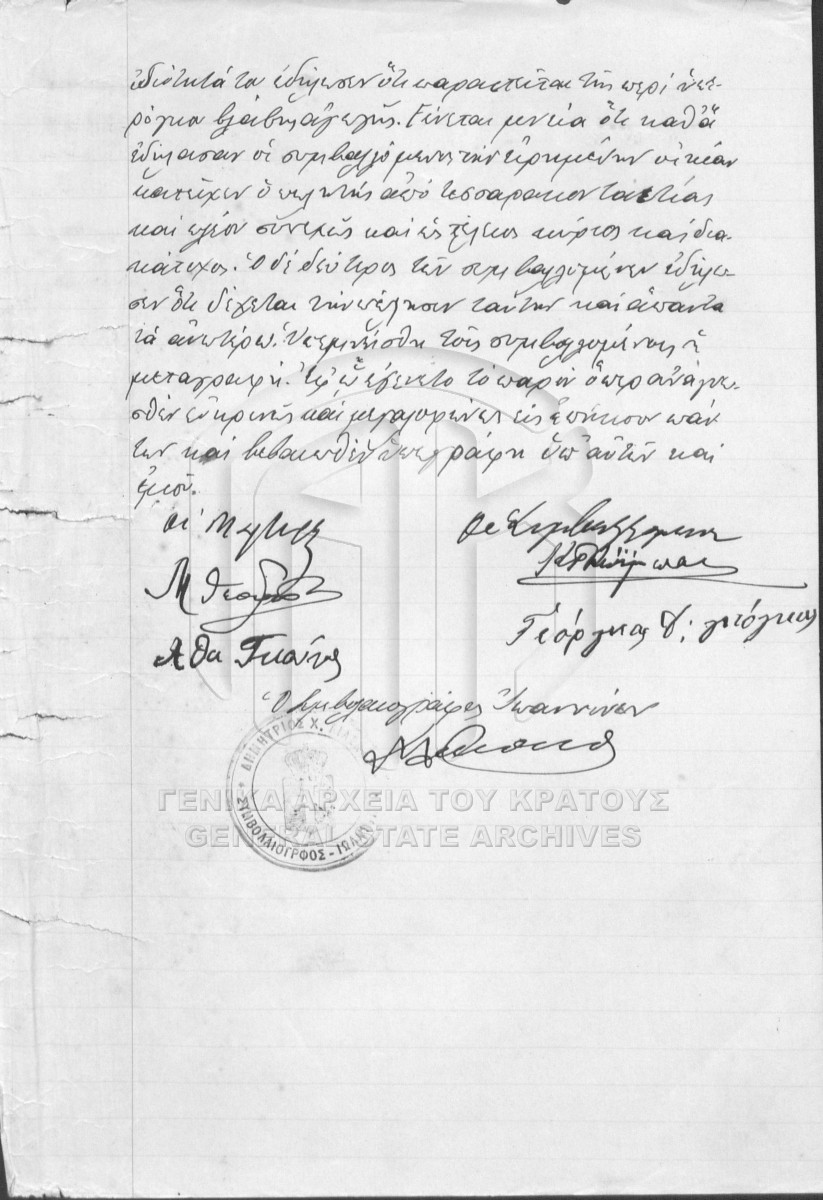 ἰδιότητά του ἐδήλωσεν ὅτι παραιτεῖται τῆς περὶ ὑπερ-
όγκου βλάβης ἀγωγῆς. Γίνεται μνεία ὅτι καθ' ἃ
ἐδήλωσαν οἱ συμβαλλόμενοι τὴν εἰρημένην οἰκίαν
κατεῖχεν ὁ πωλητὴς ἀπὸ τεσσαρακονταετίας
καὶ πλέον συνεχῶς καὶ ὡς τέλειος κύριος καὶ δια-
κάτοχος. Ὁ δὲ δεύτερος τῶν συμβαλλομένων ἐδήλω-
σεν ὅτι δέχεται τὴν πώλησιν ταύτην καὶ ἅπαντα
τὰ ἀνωτέρω. Ὑπεμνήσθη τοῖς συμβαλλομένοις ἡ
μεταγραφή. Ἐφ' ᾧ ἐγένετο τὸ παρὸν ὅπερ ἀναγνω-
σθὲν εὐκρινῶς καὶ μεγαλοφώνως εἰς ἐπήκοον πάν-
των καὶ βεβαιωθὲν ὑπεγράφη ὑπ' αὐτῶν καὶ
ἐμοῦ.
Οἱ Μάρτυρες
Οἱ Συμβαλλόμενοι
Μ
Γεόργιος
Αθα
Ὁ Συμβολαιογράφος Ἰωαννίνων
ΔΗΜΗΤΡΙΟΣ Χ.
ΣΥΜΒΟΛΑΙΟΓΡΦΟΣ - ΙΩΑΝΝ
ΓΕΝΙΚΑ ΑΡΧΕΙΑ ΤΟΥ ΚΡΑΤΟΥΣ
GENERAL STATE ARCHIVES